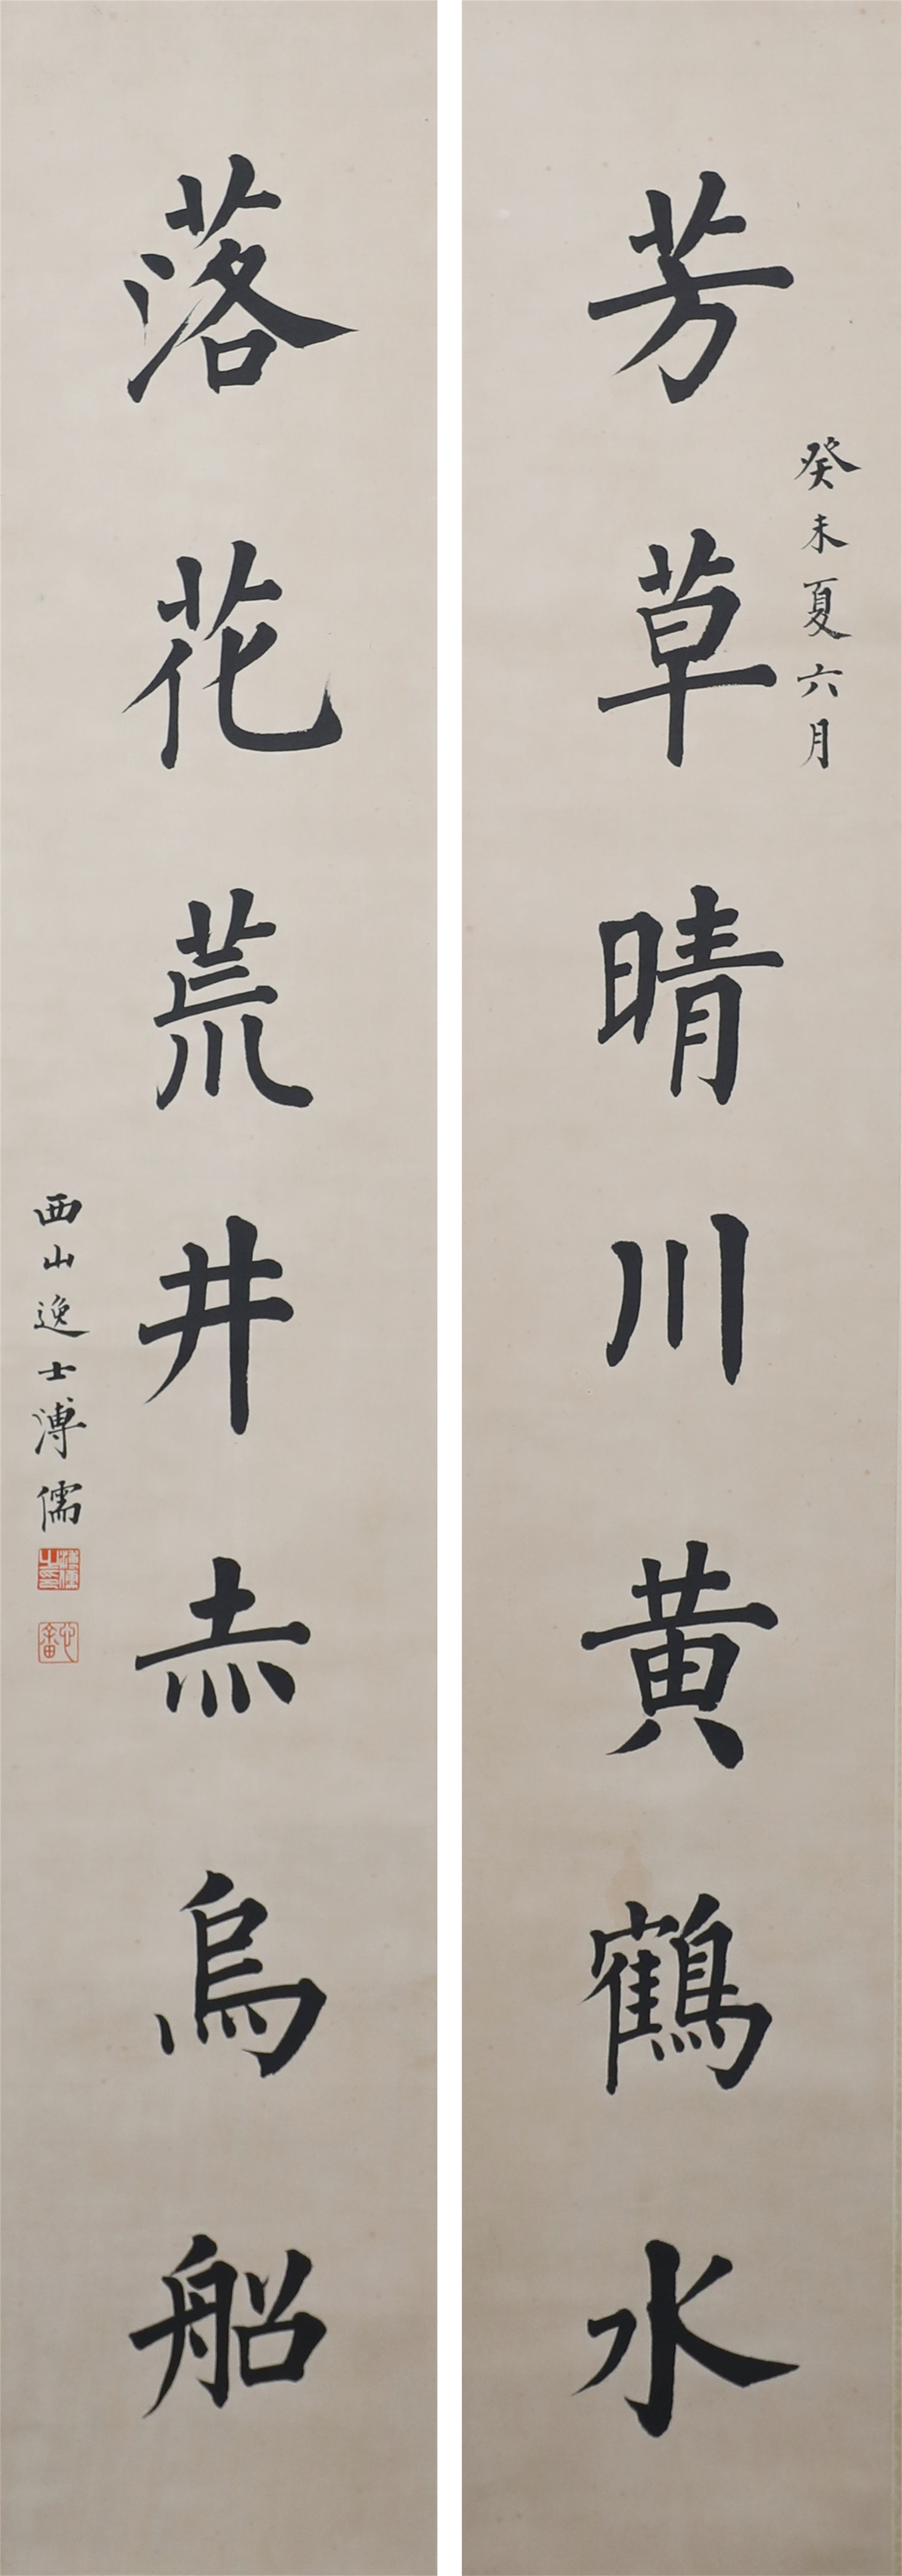 癸未夏六月
芳草晴川黄鶴水
落花荒井赤烏船
西山逸士溥儒